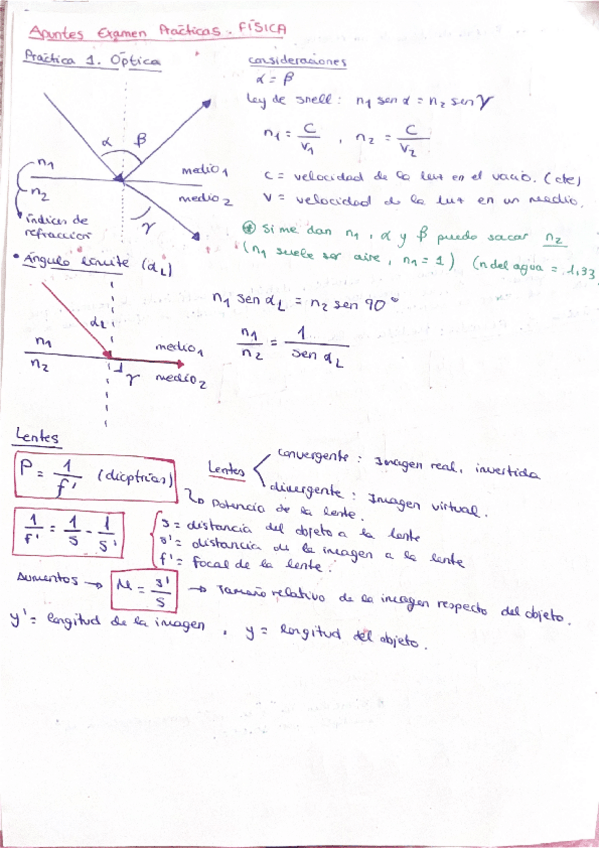 Apuntes Examen Prácticas. FÍSICA
Práctica 1. Óptica
consideraciones
α = β
Ley de snell: n1 sen α = n2 sen γ
n1 = c/v1 , n2 = c/v2
c = velocidad de la luz en el vacío. (cte)
v = velocidad de la luz en un medio.
α β
n1 medio1
n2 medio2
índices de
refracción
γ
* Si me dan n1, α y β puedo sacar n2
(n1 suele ser aire, n1 = 1) (n del agua = 1,33
• Ángulo límite (αL)
n1 sen αL = n2 sen 90°
n1/n2 = 1/sen αL
αL
n1 medio1
n2 γ medio2
Lentes
P = 1/f' (dioptrías)
Lentes
convergente: Imagen real, invertida
divergente: Imagen virtual.
↳ Potencia de la lente.
1/f' = 1/s - 1/s'
s = distancia del objeto a la lente
s' = distancia de la imagen a la lente
f' = focal de la lente.
Aumentos → M = s'/s → Tamaño relativo de la imagen respecto del objeto.
y' = longitud de la imagen , y = longitud del objeto.